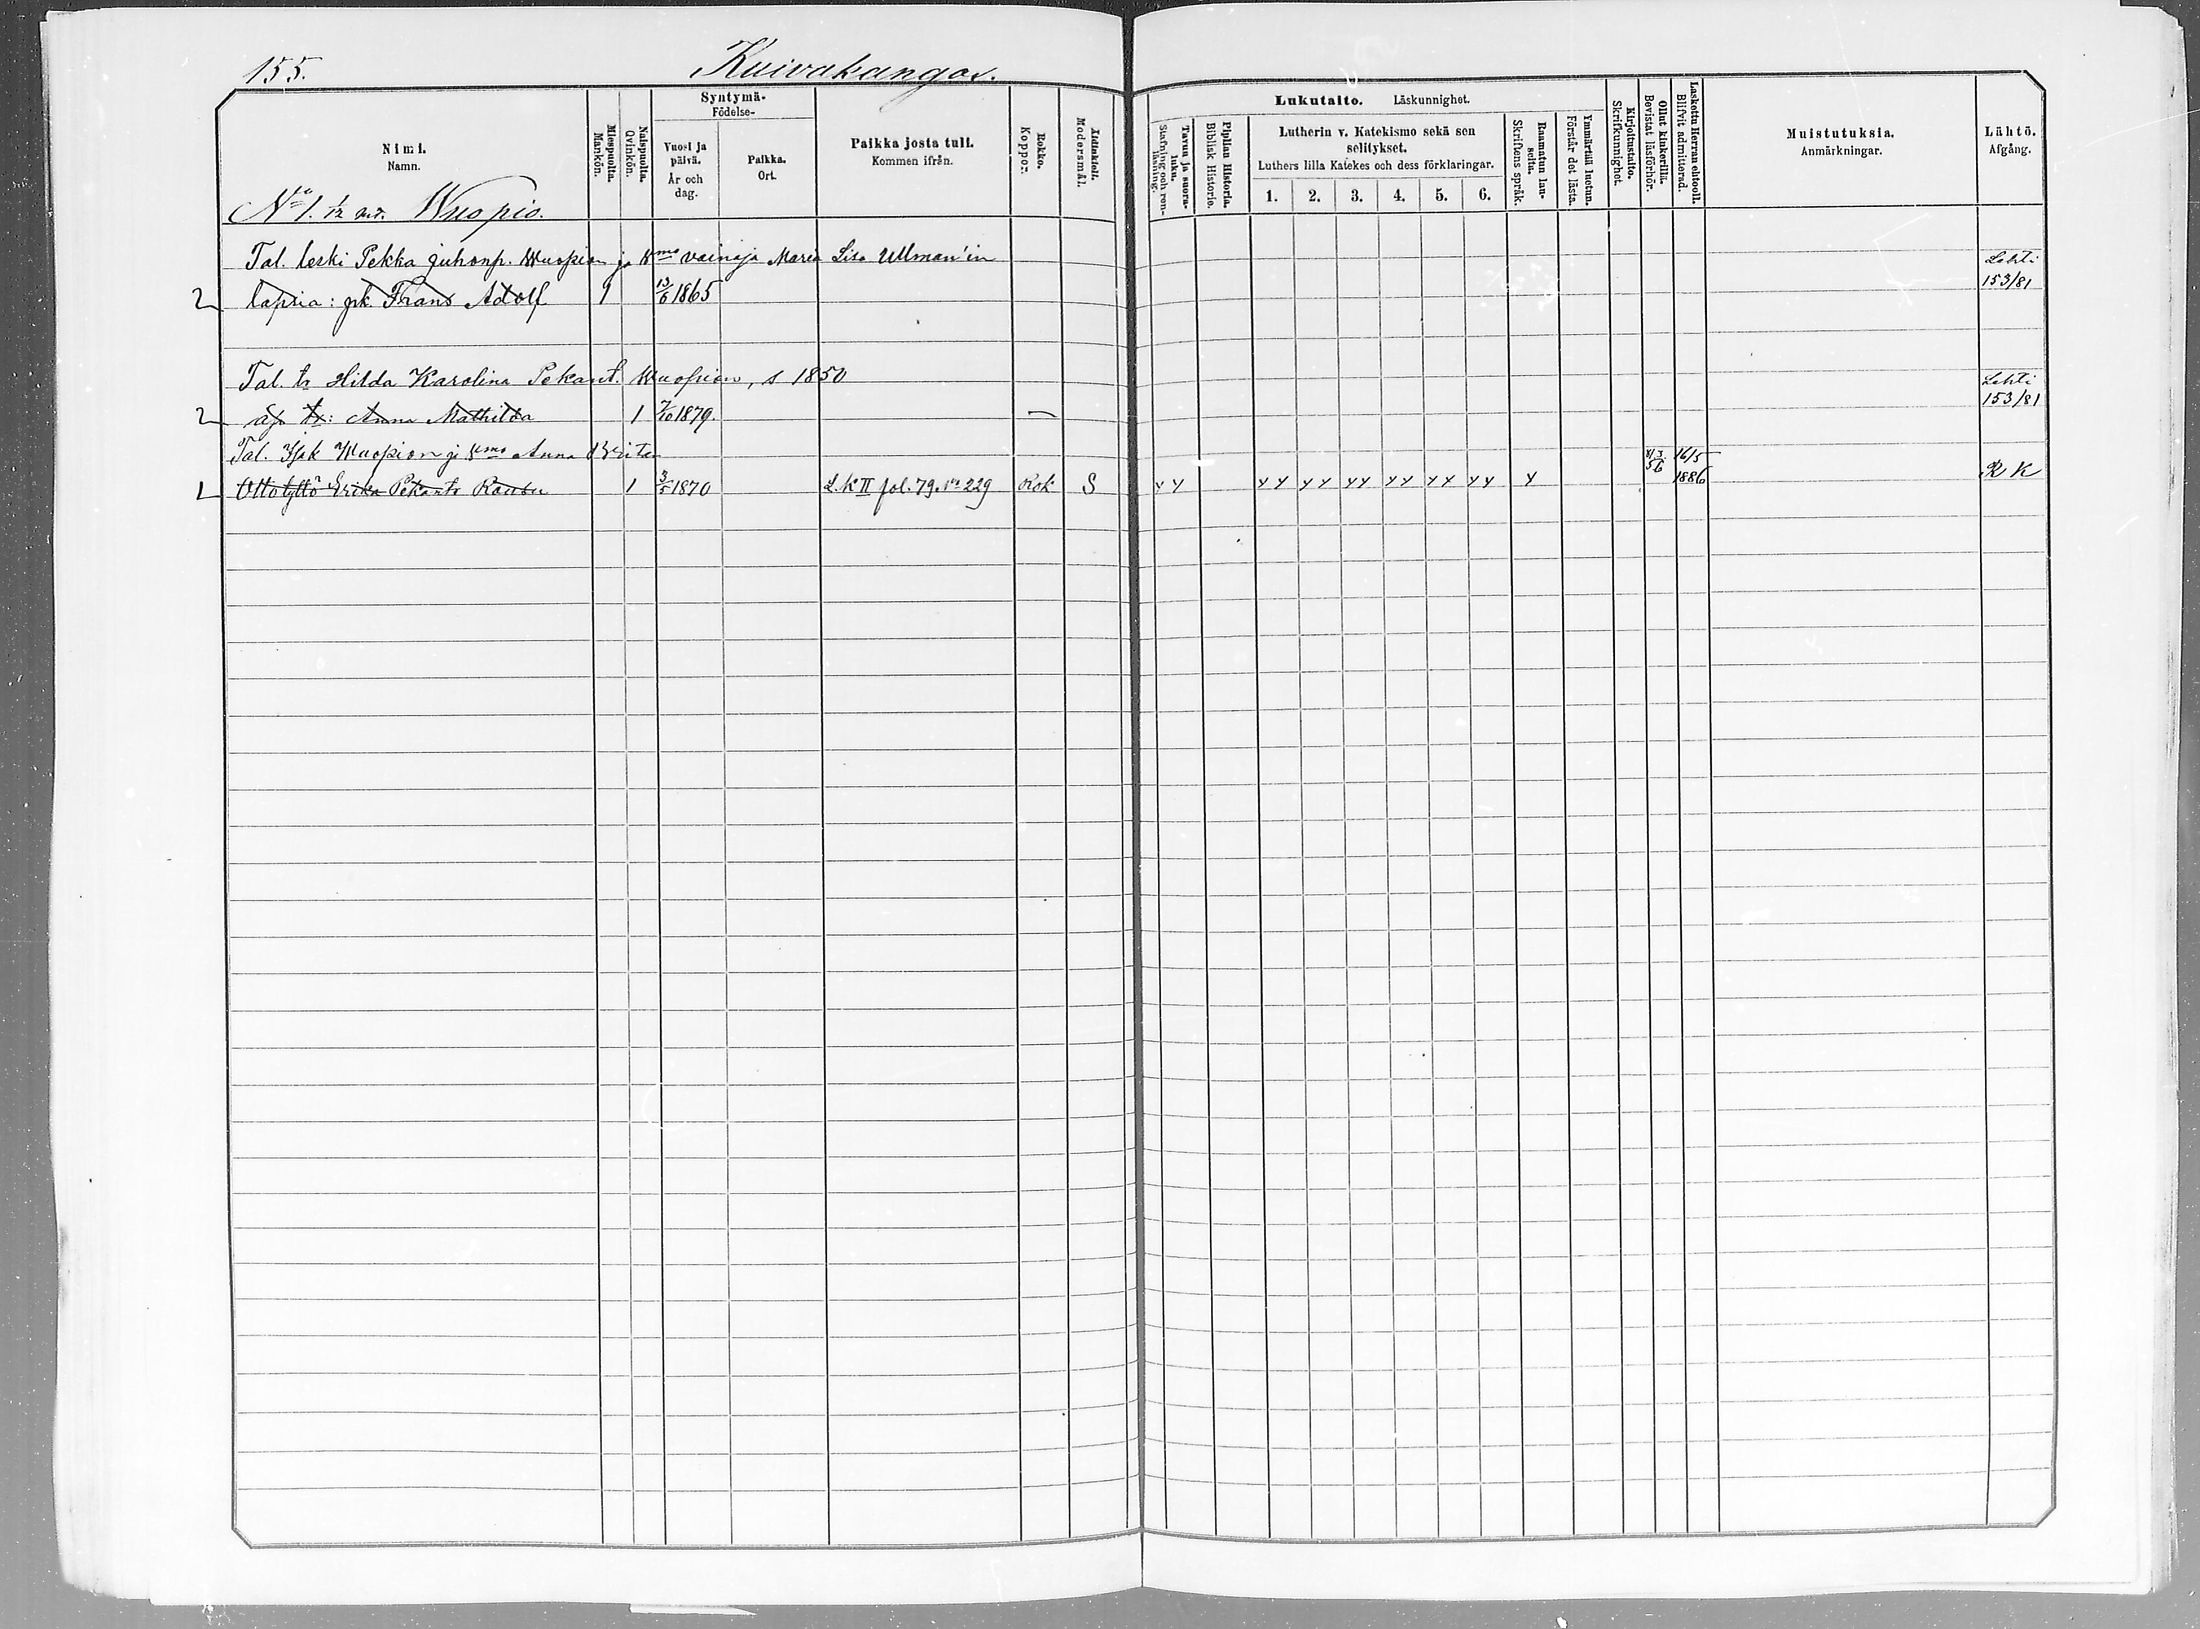 155.
Kuivakangas.
Nimi.
Namn.
Miespuolta.
Mankön.
Naispuolta.
Qvinkön.
Syntymä-
Födelse-
Vuosi ja päivä.
År och dag.
Paikka.
Ort.
Paikka josta tuli.
Kommen ifrån.
Rokko.
Koppor.
Äidinkieli.
Modersmål.
Lukutaito. Läskunnighet.
Tavun ja suora- luku.
Stafning och ren- läsning.
Piplian Historia.
Biblisk Historie.
Lutherin v. Katekismo sekä sen selitykset.
Luthers lilla Katekes och dess förklaringar.
1. 2. 3. 4. 5. 6.
Raamatun lau- seita.
Skriftens språk.
Ymmärtää luetun.
Förstår det lästa.
Kirjoitustaito.
Skrifkunnighet.
Ollut kinkerillä.
Bevistat läsförhör.
Laskettu Herran ehtooll.
Blifvit admitterad.
Muistutuksia.
Anmärkningar.
Lähtö.
Afgång.
No 1. Wuopio.
Tal. leski Pekka Juhonp. Wuopion ja Wmo vainaja Maria Lisa Ullman'in Lehti
2 lapsia: pk. Frans Adolf 1 13/6 1865 153/81
Tal. tr Hilda Karolina Pekant. Wuopion, s 1850 Lehti
2 äp. tr: Anna Mathilda 1 7/10 1879. — 153/81
Tal. Isak Wuopion ja Wmo Anna Brita 8/3 16/5
1 Ottotyttö Erika Pekant. 1 3/5 1870 L.K II fol. 79. No 229 Rok S 56 1886 R K